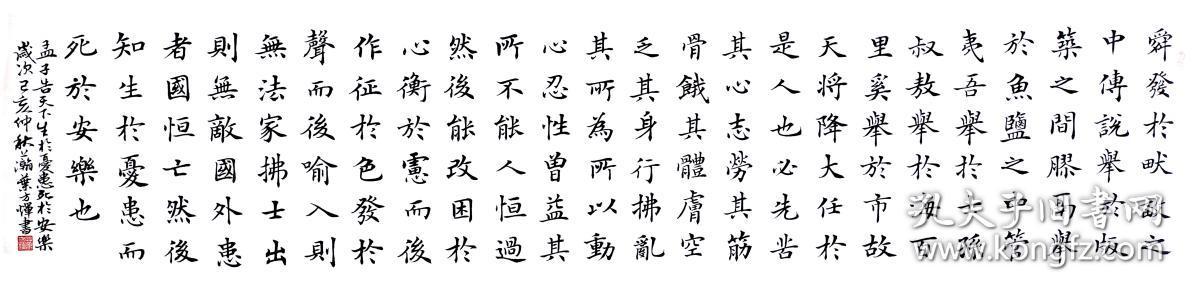 舜發於畎畝之
中傳說舉於版
築之間膠鬲舉
於魚鹽之中管
夷吾舉於士孫
叔敖舉於海百
里奚舉於市故
天將降大任於
是人也必先苦
其心志勞其筋
骨餓其體膚空
乏其身行拂亂
其所為所以動
心忍性曾益其
所不能人恒過
然後能改困於
心衡於慮而後
作征於色發於
聲而後喻入則
無法家拂士出
則無敵國外患
者國恒亡然後
知生於憂患而
死於安樂也
孟子告天下生於憂患死於安樂
歲次己亥仲秋瀚葉方書
孔夫子旧书网
www.kongfz.com